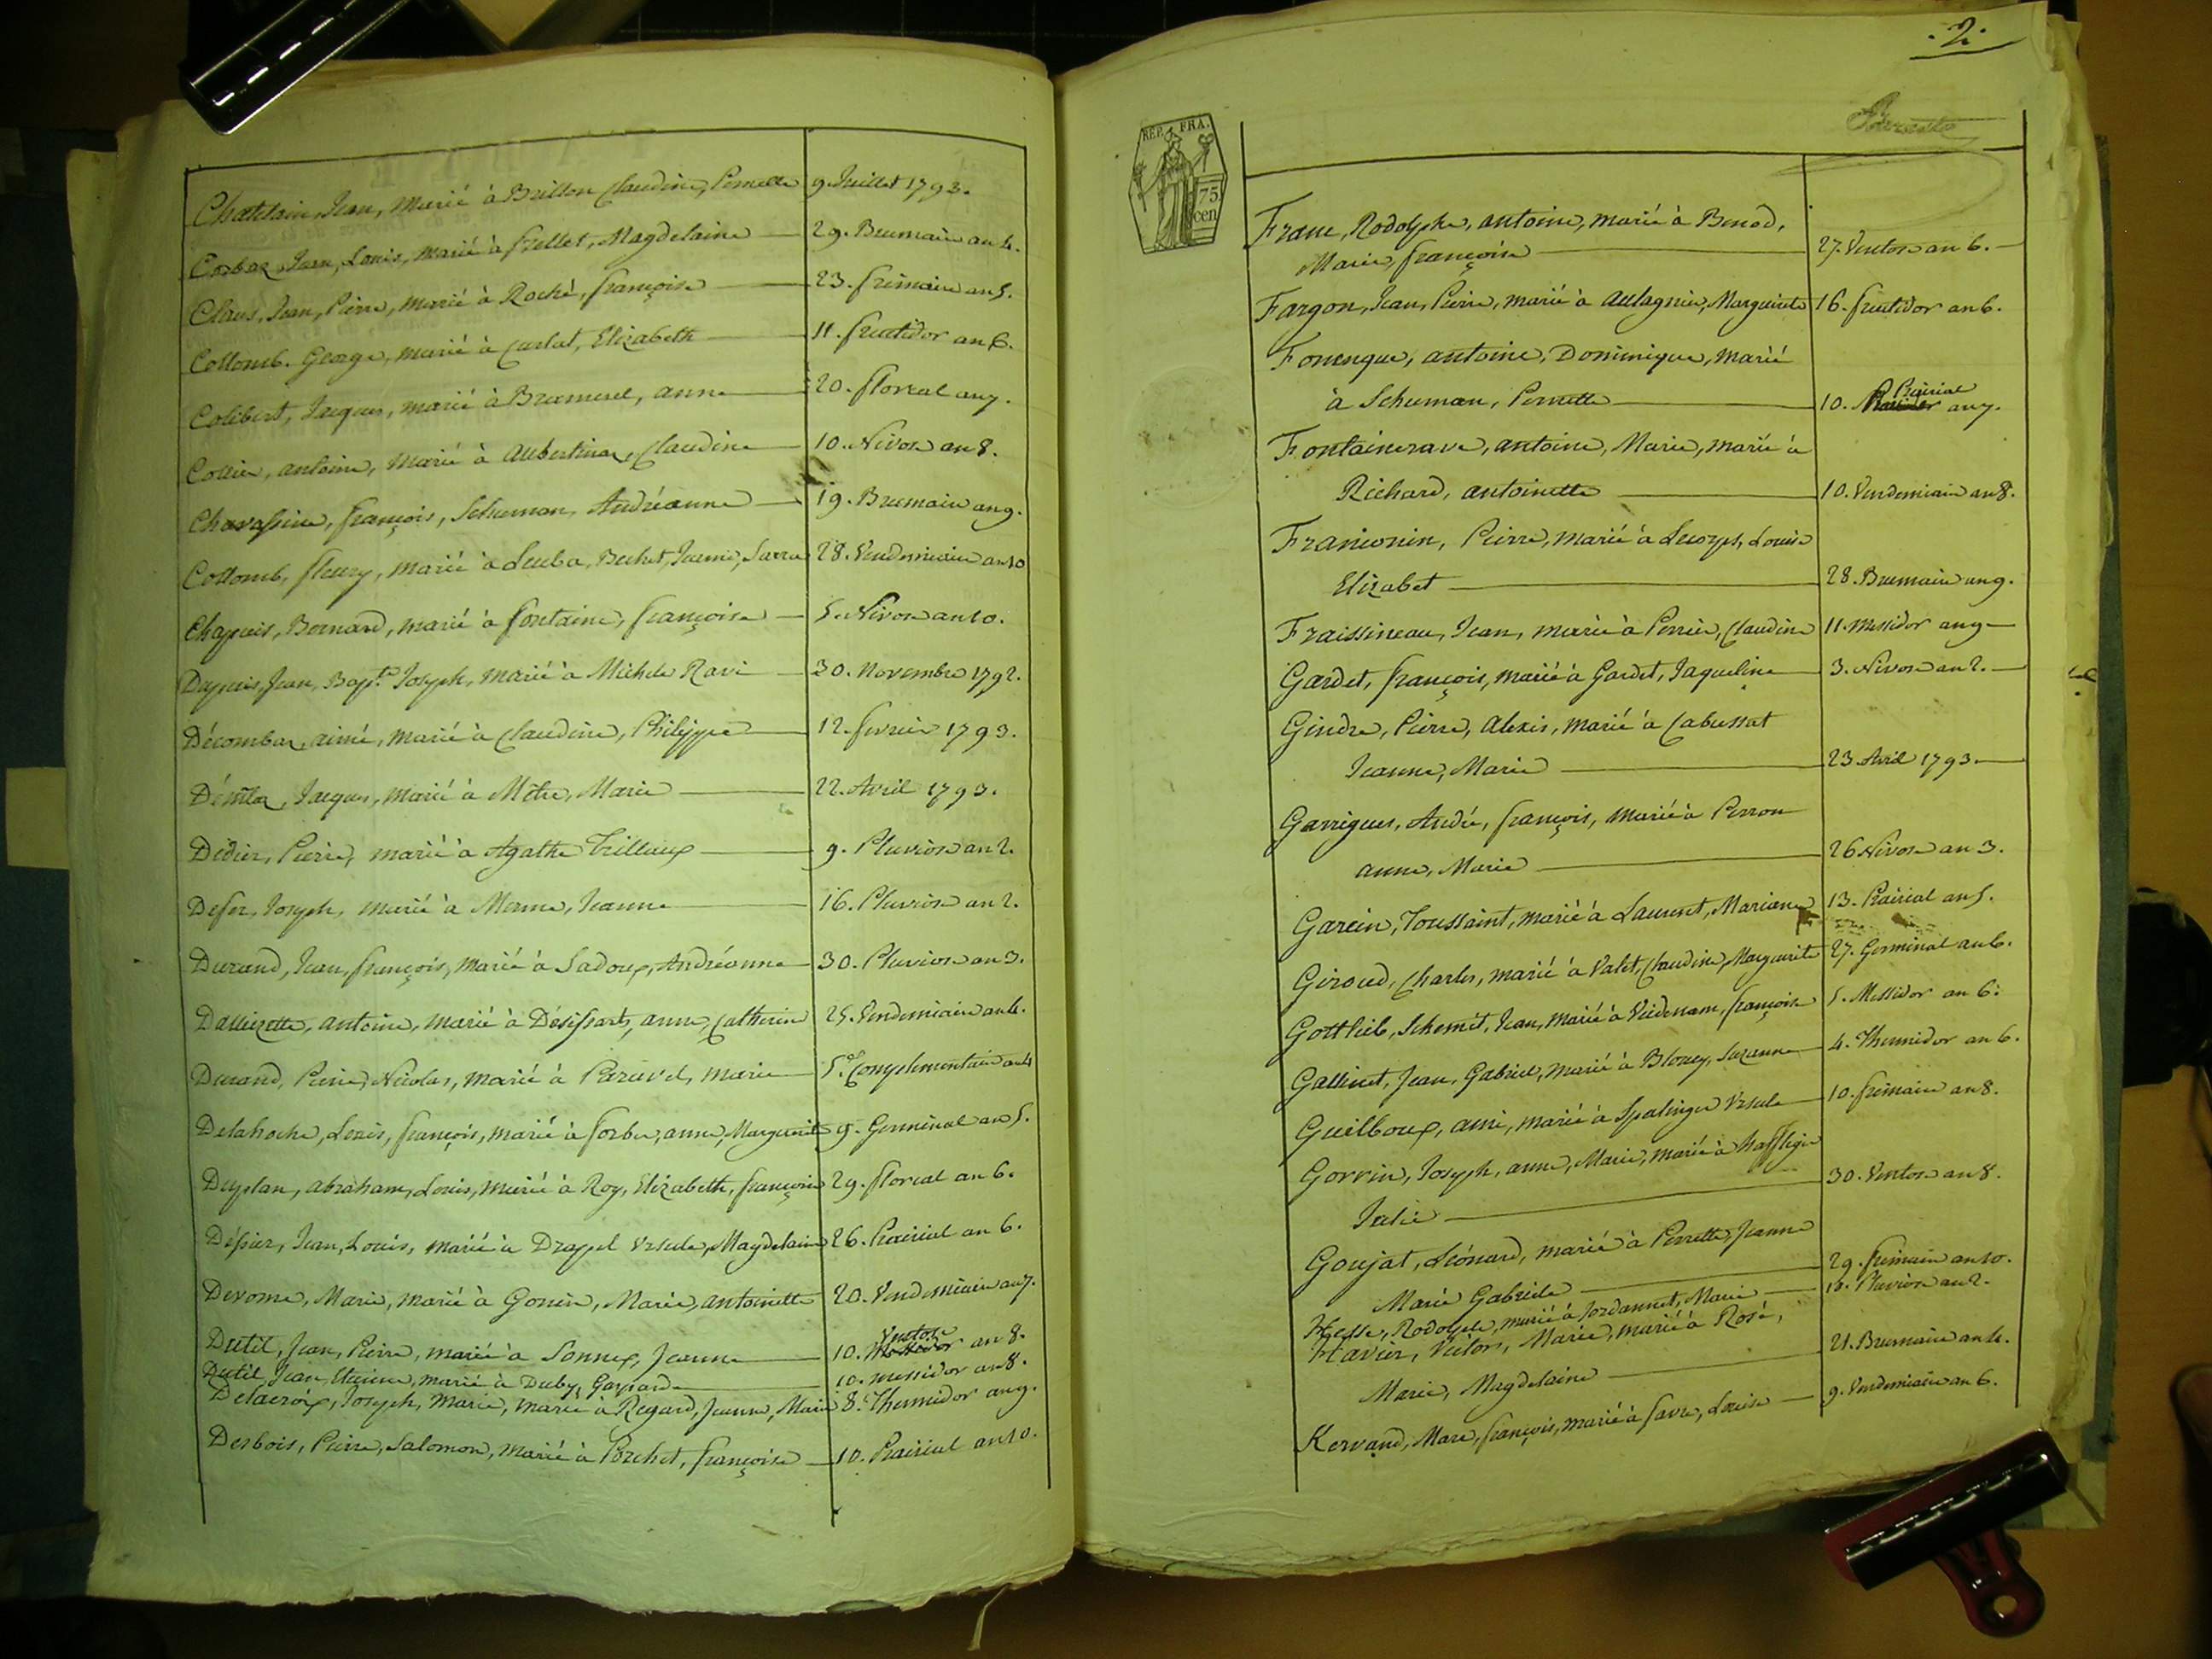 Chatelain, Jean, Marié à Brillon Claudine, Pernette 9. Juillet 1793.
Corbaz, Jean, Louis, Marié à frellet, Magdelaine 29. Brumaire an 4.
Claus, Jean, Pierre, marié à Roché, françoise 23. frimaire an 5.
Collomb. George, marié à Carlat, Elizabeth 11. fructidor an 6.
Colibert, Jacques, marié à , anne 20. floreal an 7.
Collier, antoine, Marié à , Claudine 10. Nivose an 8.
Chavassine, françois, Schuman, Andréanne 19. Brumaire an 9.
Collomb, fleury, marié à Leuba, Bechet, , Sarra 28. Vendemiaire an 10
Chapuis, Bernard, marié à fontaine, françoise 5. Nivose an 10.
Dupuis, Jean, Bapte. Joseph, Marié à Michele Ravi 30. Novembre 1792.
Décombaz, aimé, marié à Claudine, Philippe 12. fevrier 1793.
Jacques, Marié à , Marie 22. Avril 1793.
Didier, Pierre, marié à Agathe Trilleux 9. Pluviose an 2.
Defer, Joseph, marié à Merme, Jeanne 16. Pluviose an 2.
Durand, Jean, françois, Marié à Sadoux, Andréanne 30. Pluviose an 3.
antoine, marié à Désissarts, anne, Catherine 25. Vendemiaire an 4.
Durand, Pierre, Nicolas, marié à , marie 5.e Complementaire an 4
Delahoche, Louis, françois, marié à forber, anne, Marguerite 9. Germinal an 5.
Duplan, abraham, Louis, marié à Roy, Elizabeth, françoise 29. floreal an 6.
Jean, Louis, marié à Drapel Ursule, Magdelaine 26. Prairial an 6.
Devome, Marie, marié à Gonin, Marie, antoinette 20. Vendemiaire an 7.
Dutil, Jean, Pierre, marié à Sonnex, Jeanne 10. Ventose an 8.
Dutil, Jean, Etienne, marié à Duby, Gaspard 10. messidor an 8.
Delacroix, Joseph, Marie, marié à Regard, Jeanne, Marie 8. Thermidor an 9.
Desbois, Pierre, Salomon, marié à Porchet, françoise 10. Prairial an 10.
. 2 .
REP. FRA.
75
cen
Franc, Rodolphe, antoine, marié à Benod,
Marie, françoise 27. Ventose an 6.
Fargon, Jean, Pierre, marié à Aulagnier, Marguerite 16. fructidor an 6.
Fonenque, antoine, Dominique, marié
à Schuman, Pernette 10. Prairial an 7.
Fontainerave, antoine, Marie, marié à
Richard, antoinette 10. Vendemiaire an 8.
Franconin, Pierre, marié à Lecorps, Louise
Elizabet 28. Brumaire an 9.
Fraissineau, Jean, marié à Perrier, Claudine 11. messidor an 9
Gardet, françois, marié à Gardet, Jaqueline 3. Nivose an 2.
Gindre, Pierre, Alexis, marié à Cabussat
Jeanne, Marie 23 Avril 1793.
Garrigues, André, françois, marié à Perron
anne, Marie 26 Nivose an 3.
Garcin, Toussaint, marié à Laurent, Mariane 13. Prairial an 5.
Giroud, Charles, marié à Valet, Claudine, Marguerite 27. Germinal an 6.
Gottlieb, Schemit, Jean, marié à , françoise 5. Messidor an 6.
Gallinet, Jean, Gabriel, marié à Blouey, Suzanne 4. Thermidor an 6.
Guilboux, ami, marié à Spalinger Ursule 10. frimaire an 8.
Gorrin, Joseph, anne, Marie, marié à
Julie 30. Ventose an 8.
Goujat, Léonard, marié à Perrette, Jeanne
Marie Gabriele 29. frimaire an 10.
Hesse, Rodolphe, marié à Jordannet, Marie 18. Pluviose an 2.
Havier, Victor, Marie, marié à Rosé,
Marie, Magdelaine 21. Brumaire an 4.
Kervand, Marc, françois, marié à favre, Louise 9. Vendemiaire an 6.